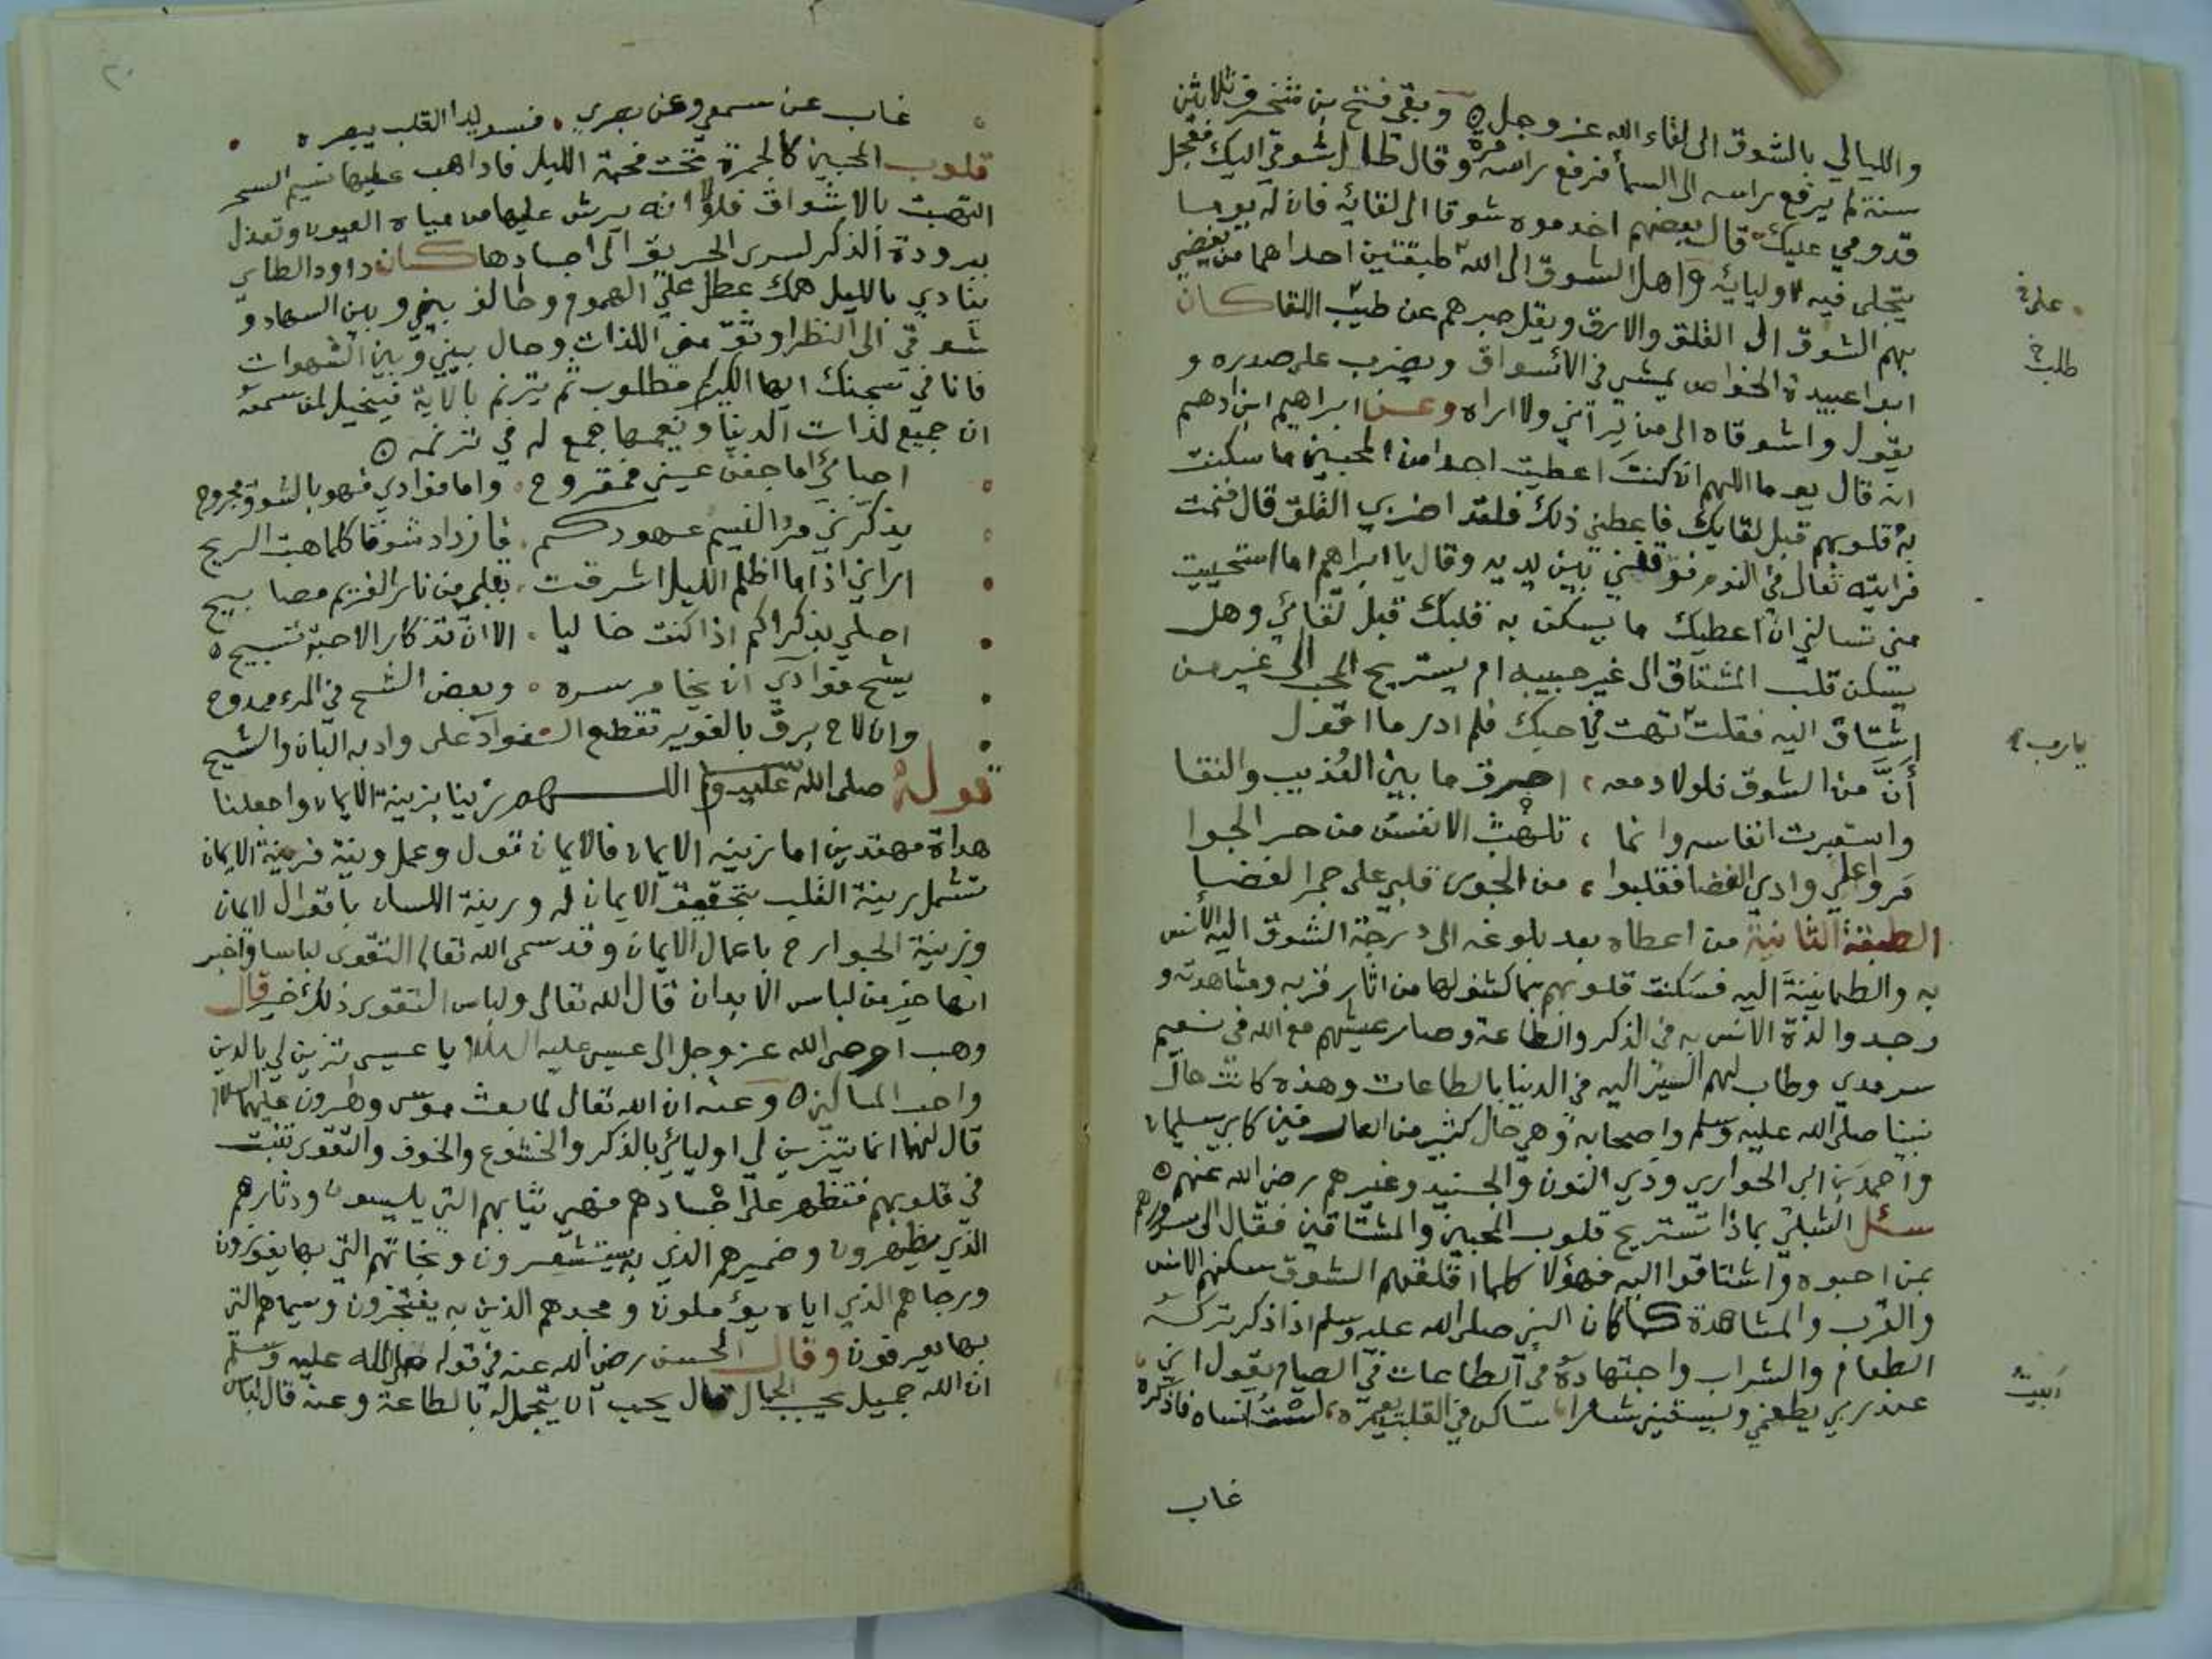 والليالي بالشوق الى لقاء الله عز وجل ه وبقي فتح بن شخرف ثلاثين
سنة لم يرفع راسه الى السما فرفع راسه مرة وقال طال شوقي اليك فعجل
قدومي عليك قال بعضهم اخدموه شوقا الى لقائه فان له يوما
يتجلى فيه لاوليائه واهل الشوق الى الله طبقتين احداهما من يفضي
بهم الشوق الى القلق والارق ويقل صبرهم عن طيب اللقا كان
ابوا عبيدة الخواص يمشي في الاسواق ويضرب على صدره و
يقول واشوقاه الى من يراني ولا اراه وعن ابراهيم ابن ادهم
انه قال يوما اللهم ان كنت اعطيت احدا من المحبين ما سكنت
به قلوبهم قبل لقايك فاعطني ذلك فلقد اضر بي القلق قال فنمت
فرايته تعالى في النوم فوقفني بين يديه وقال يا ابراهيم اما استحييت
مني تسالني ان اعطيك ما يسكن به قلبك قبل لقائي وهل
يسكن قلب المشتاق الى غير حبيبه ام يستريح المحب الى غير من
اشتاق اليه فقلت تهت في حبك فلم ادر ما اقول
أنَّ من الشوق فلولا دمعه ، احرق ما بين العذيب والنقا
واستعبرت انفاسه وانما ، تلهث الانفس من حر الجوا
مروا على وادي الغضا فقلبوا ، من الجوى قلبي على جمر الغضا
الطبقة الثانية من اعطاه بعد بلوغه الى درجة الشوق اليه الأنس
به والطمانينة اليه فسكنت قلوبهم بما كشف لها من اثار قربه ومشاهدته و
وجدوا لذة الانس به في الذكر والطاعة وصار عيشهم مع الله في نعيم
سرمدي وطاب لهم السير اليه في الدنيا بالطاعات وهذه كانت حال
نبينا صلى الله عليه وسلم واصحابه وهي حال كثير من العارفين كابي سليمان
واحمد بن ابي الحواري وذي النون والجنيد وغيرهم رضي الله عنهم ه
سئل الشبلي بماذا تستريح قلوب المحبين والمشتاقين فقال الى سرورهم
بمن احبوه واشتاقوا اليه فهؤلا كلما اقلقهم الشوق سكنهم الانس
والقرب والمشاهدة كما كان النبي صلى الله عليه وسلم اذا ذكر تركه
الطعام والشراب واجتهاده في الطاعات في الصيام يقول اني
عند ربي يطعمني ويسقيني شعرا ساكن في القلب يعمره ، لست انساه فاذكره
غاب
طلب
يا رب
ابيت
٢٠
غاب عن سمعي وعن بصري . فسويدا القلب يبصره
قلوب المحبين كالجمرة تحت فحمة الليل فاذا هب عليها نسيم السحر
التهبت بالاشواق فلولا انه يرش عليها من مياه العيون وتعدل
ببرودة الذكر لسرى الحريق الى اجسادها كان داود الطاي
ينادي بالليل همك عطل علي الهموم وحالف بيني وبين السهاد و
شوقي الى النظر اوثق مني اللذات وحال بيني وبين الشهوات
فانا في سجنك ايها الكريم مطلوب ثم يترنم بالاية فيخيل لمن سمعه
ان جميع لذات الدنيا ونعيمها جمع له في ترنمه ه
احبائي اما جفن عيني فمقروح . واما فوادي فهو بالشوق مجروح
يذكرني مر النسيم عهودكم . فازداد شوقا كلما هبت الريح
اراني اذا ما اظلم الليل اشرقت . بقلبي من نار الغريم مصابيح
اصلي بذكراكم اذا كنت خاليا . الا ان تذكار الاحبة تسبيح ه
يشح فوادي ان يخامر سره . وبعض الشح في المرء ممدوح
وان لاح برق بالغوير تقطع الفواد على واد به البان والشيح
قوله صلى الله عليه وسلم اللهم زينا بزينة الايمان واجعلنا
هداة مهتدين اما زينه الايمان فالايمان قول وعمل ونية فزينة الايمان
تشمل زينة القلب بتحقيق الايمان له وزينة اللسان باقوال الايمان
وزينة الجوارح باعمال الايمان وقد سمى الله تعالى التقوى لباسا واخبر
انها خير من لباس الابدان قال الله تعالى ولباس التقوى ذلك خير قال
وهب اوحى الله عز وجل الى عيسى عليه السلام يا عيسى تزين لي بالدين
واحب المساكين ه وعنه ان الله تعالى لما بعث موسى وهرون عليهما السلام
قال لهما انما يتزين لي اوليائي بالذكر والخشوع والخوف والتقوى تنبت
في قلوبهم فتظهر على اجسادهم فهي ثيابهم التي يلبسون ودثارهم
الذي يظهرون وضميرهم الذي به يستشعرون ونجاتهم التي بها يفوزون
ورجاهم الذي اياه يؤملون ومجدهم الذين به يفتخرون وسيماهم التي
بها يعرفون وقال الحسن رضي الله عنه في قوله صلى الله عليه وسلم
ان الله جميل يحب الجمال قال يحب ان يتجمل له بالطاعة وعنه قال لباس